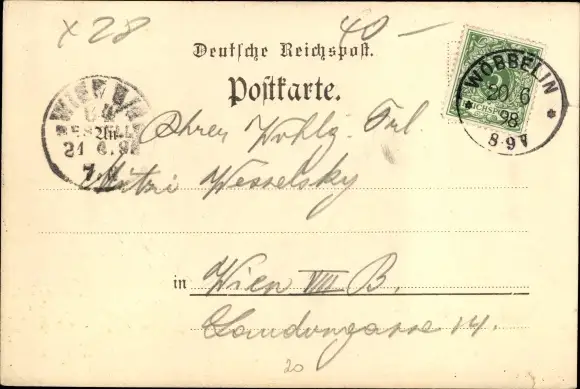 x 28
40 —
Deutsche Reichspost.
Postkarte.
WÖBBELIN
20 6
98
8-9V
WIEN
BESTELLT
21 6. 98
Ihrer Wohlg. Frl.
Mitzi Wesselsky
in Wien VIII B.
Laudongasse 14.
20